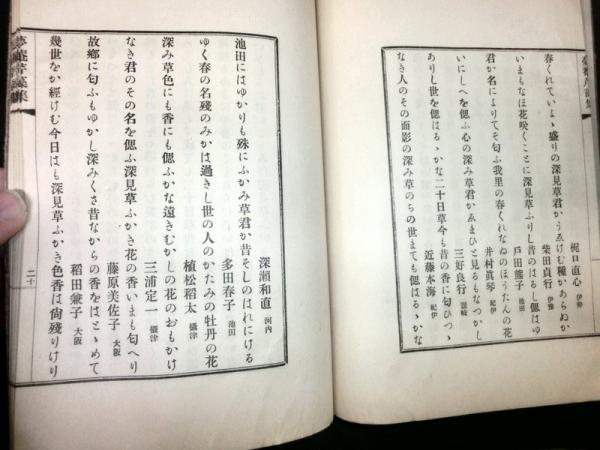 梶口直心 伊勢
春くれていよゝ盛りの深見草君かうゑけむ種かあらぬか
柴田貞行 伊豫
いまもなほ花咲くことに深見草ふりし昔のはるし偲はゆ
戸田能子 池田
君か名によりてそ匂ふ我里の春くれなゐのほうたんの花
井村眞琴 紀伊
いにしへを偲ふ心の深見草君かゑまひと見るもなつかし
三好良行 讃岐
ありし世を偲はるゝかな二十日草今も昔の香に匂ひつゝ
近藤本海 紀伊
なき人のその面影の深み草のちの世まても偲はるゝかな
深瀬和直 河内
池田にはゆかりも殊にふかみ草君か昔そしのはれにける
多田春子 池田
ゆく春の名殘のみかは過きし世の人のかたみの牡丹の花
植松稻太 攝津
深み草色にも香にも偲ふかな遠きむかしの花のおもかけ
三浦定一 攝津
なき君のその名を偲ふ深見草ふかき花の香いまも匂へり
藤原美佐子 大阪
故鄕に匂ふもゆかし深みくさ昔なからの香をはとゝめて
稻田兼子 大阪
幾世をか經けむ今日はも深見草ふかき色香は尙殘りけり
二十